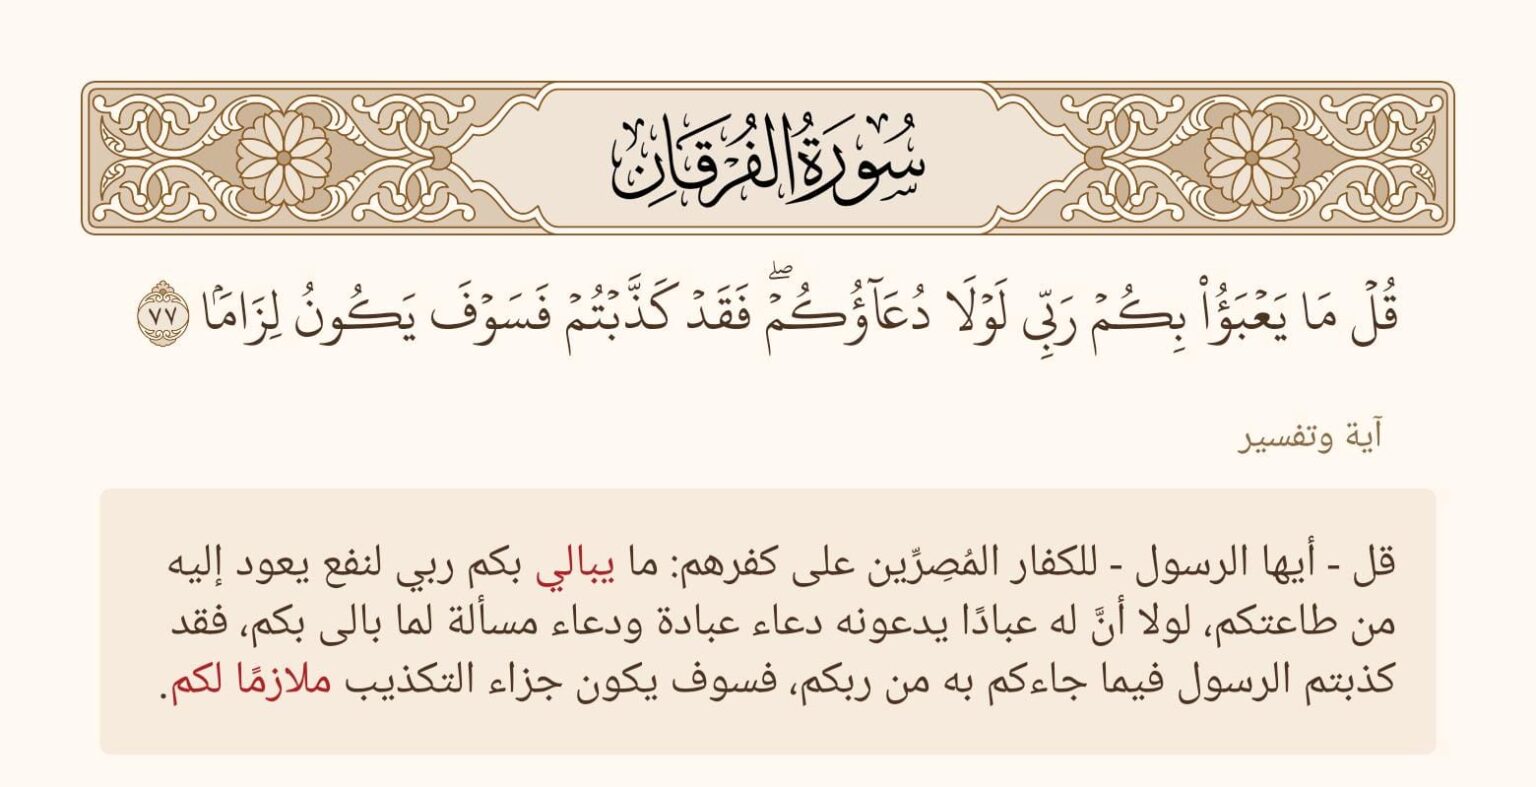 سُورَةُ الفُرْقَانِ
قُلۡ مَا يَعۡبَؤُاْ بِكُمۡ رَبِّي لَوۡلَا دُعَآؤُكُمۡۖ فَقَدۡ كَذَّبۡتُمۡ فَسَوۡفَ يَكُونُ لِزَامَۢا ٧٧
آية وتفسير
قل - أيها الرسول - للكفار المُصِرِّين على كفرهم: ما يبالي بكم ربي لنفع يعود إليه
من طاعتكم، لولا أنَّ له عبادًا يدعونه دعاء عبادة ودعاء مسألة لما بالى بكم، فقد
كذبتم الرسول فيما جاءكم به من ربكم، فسوف يكون جزاء التكذيب ملازمًا لكم.